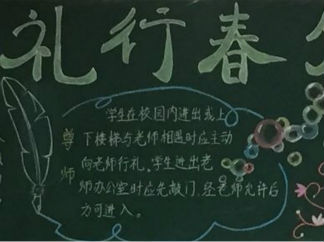 礼行春
尊师
学生在校园内进出或上
下楼梯与老师相遇时应主动
向老师行礼。学生进出老
师办公室时应先敲门,经老师允许后
方可进入。